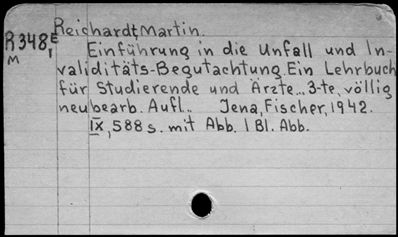 Reichardt, Martin.
R 348, E
M
Einführung in die Unfall und In-
validitäts-Begutachtung. Ein Lehrbuch
für Studierende und Ärzte... 3-te, völlig
neubearb. Aufl.. Jena, Fischer, 1942.
IX, 588 s. mit Abb. 1 Bl. Abb.